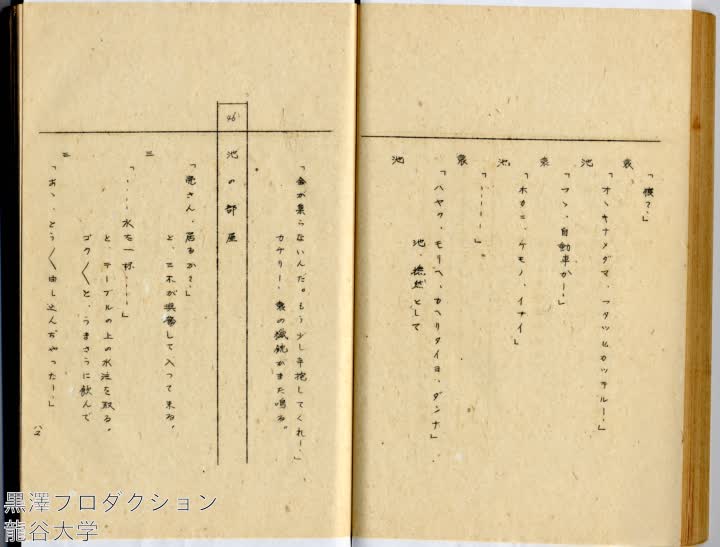 池
「オヽキナメダマ、フタツヒカッテルー」
池
「フヽ、自動車かー」
「ホカニ、ケモノ、イナイ」
池
「……」
「ハヤク、モリヘ、カヘリタイヨ、ダンナ」
池、憮然として
池
「金が集らないんだ。もう少し辛抱してくれー」
カケリー、の猟銃がまた鳴る。
46 池の部屋
「亮さん、居るか?」
と、二木が興奮して入って来る。
二
「……水を一杯……」
と テーブルの上の水注を取る。
ゴク〱と、うまさうに飲んで
二
「おゝ、とう〱申し込んぢやったー」
八二
黒澤プロダクション
龍谷大学